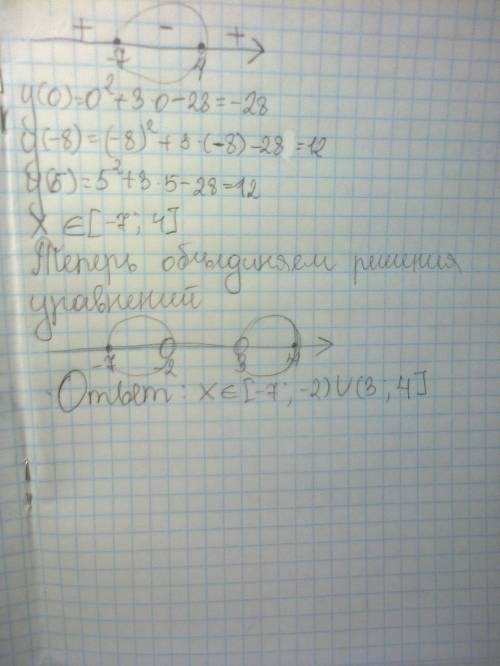 + - +
-7 4
y(0)=0²+3·0-28=-28
y(-8)=(-8)²+3·(-8)-28=12
y(5)=5²+3·5-28=12
x ∈[-7; 4]
Теперь объединяем решения
уравнений
-7 -2 3 4
Ответ: x∈[-7;-2)∪(3;4]